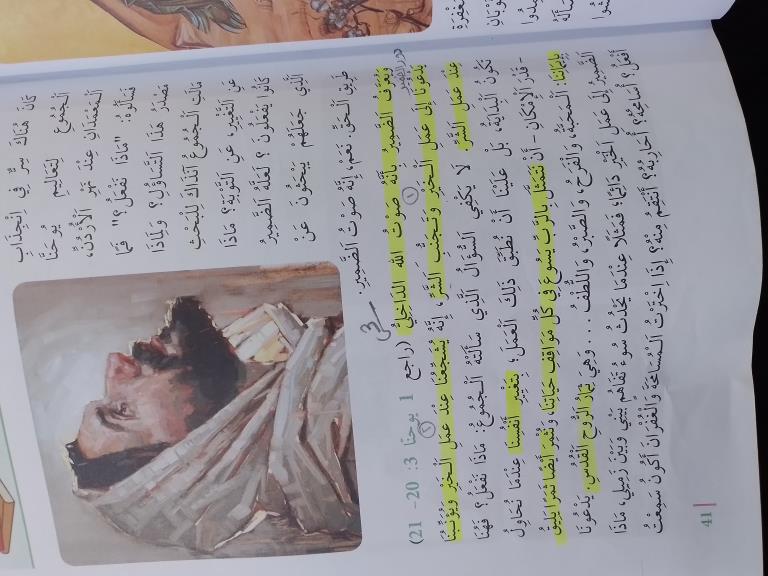 كَانَ هُنَاكَ سِرٌّ فِي انْجِذَابِ
الْجُمُوعِ لِتَعَالِيمِ يُوحَنَّا
الْمَعْمَدَانِ عِنْدَ نَهْرِ الْأُرْدُنِّ،
فَسَأَلُوهُ: "مَاذَا نَفْعَلُ؟" فَمَا
مَصْدَرُ هَذَا التَّسَاؤُلِ؟ وَلِمَاذَا
مَالَتِ الْجُمُوعُ آنَذَاكَ لِلْبَحْثِ
عَنِ التَّغْيِيرِ، عَنِ التَّوْبَةِ؟ مَاذَا
كَانُوا يَفْعَلُونَ؟ لَعَلَّهُ الضَّمِيرُ
الَّذِي جَعَلَهُمْ يَبْحَثُونَ عَنْ
طَرِيقِ الْحَقِّ. نَعَمْ، إِنَّهُ صَوْتُ الضَّمِيرِ.
وَيُعَرَّفُ الضَّمِيرُ بِأَنَّهُ صَوْتُ اللهِ الدَّاخِلِيُّ (راجع 1 يوحنا 3: 20- 21)
يَدْعُونَا إِلَى عَمَلِ الْخَيْرِ وَتَجَنُّبِ الشَّرِّ، إِنَّهُ يُشَجِّعُنَا عِنْدَ عَمَلِ الْخَيْرِ وَيُؤَنِّبُنَا
عِنْدَ عَمَلِ الشَّرِّ. لَا يَكْفِي السُّؤَالُ الَّذِي سَأَلَتْهُ الْجُمُوعُ: مَاذَا نَفْعَلُ؟ فَهُنَا
تَكُونُ الْبِدَايَةُ، بَلْ عَلَيْنَا أَنْ نُطَبِّقَ ذَلِكَ الْعَمَلَ؛ بِتَغْيِيرِ أَنْفُسِنَا عِنْدَمَا نُحَاوِلُ
-قَدْرَ الْإِمْكَانِ- أَنْ نَتَمَثَّلَ بِالرَّبِّ يَسُوعَ فِي كُلِّ مَوَاقِفِ حَيَاتِنَا، وَنُثْمِرَ أَيْضًا ثَمَرًا يَلِيقُ
بِإِيمَانِنَا: الْمَحَبَّةُ، وَالْفَرَحُ، وَالصَّبْرُ، وَاللُّطْفُ ... وَهِيَ ثِمَارُ الرُّوحِ الْقُدُسِ. يَدْعُونَا
الضَّمِيرُ إِلَى عَمَلِ الْخَيْرِ دَائِمًا؛ فَمَثَلًا عِنْدَمَا يَحْدُثُ سُوءُ تَفَاهُمٍ بَيْنِي وَبَيْنَ زَمِيلِي، مَاذَا
أَفْعَلُ؟ أُسَامِحُهُ؟ أُحَارِبُهُ؟ أَنْتَقِمُ مِنْهُ؟ إِذَا اخْتَرْتُ الْمُسَامَحَةَ وَالْغُفْرَانَ أَكُونُ سَمِعْتُ
41